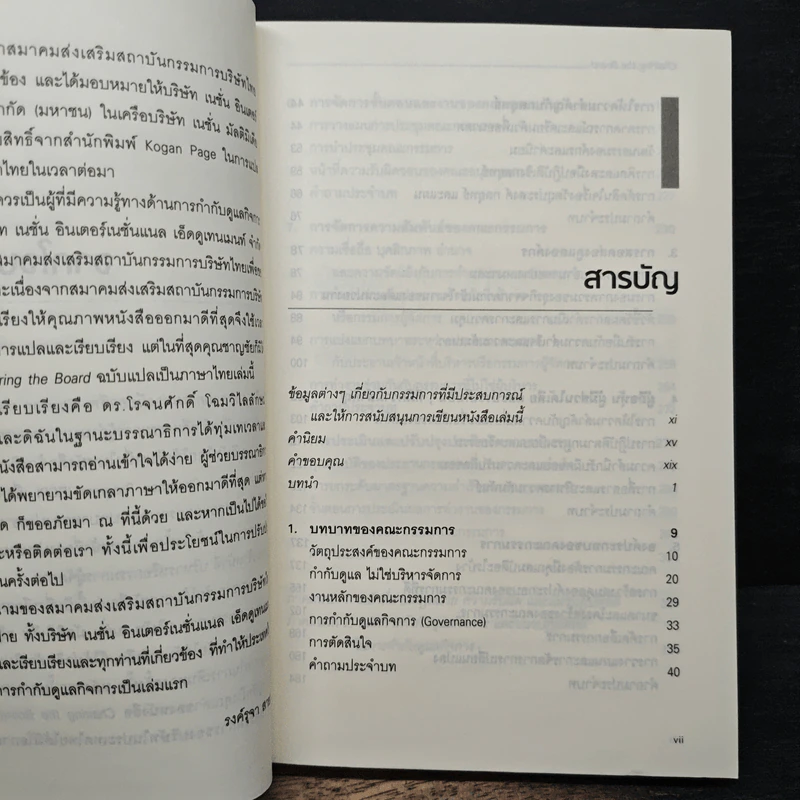 าสมาคมส่งเสริมสถาบันกรรมการบริษัทไทย
ข้อง และได้มอบหมายให้บริษัท เนชั่น อินเตอร์
ำกัด (มหาชน) ในเครือบริษัท เนชั่น มัลติมีเดีย
งสิทธิ์จากสำนักพิมพ์ Kogan Page ในการแปล
าไทยในเวลาต่อมา
ควรเป็นผู้ที่มีความรู้ทางด้านการกำกับดูแลกิจกา
ัท เนชั่น อินเตอร์เนชั่นแนล เอ็ดดูเทนเมนท์ จำกั
สมาคมส่งเสริมสถาบันกรรมการบริษัทไทยเพื่อข
ะเนื่องจากสมาคมส่งเสริมสถาบันกรรมการบริษั
เรียงให้คุณภาพหนังสือออกมาดีที่สุดจึงใช้เว
การแปลและเรียบเรียง แต่ในที่สุดคุณชาญชัยก็มี
ring the Board ฉบับแปลเป็นภาษาไทยเล่มนี้
เรียบเรียงคือ ดร.โรจนศักดิ์ โฉมวิไลลักษ
และดิฉันในฐานะบรรณาธิการได้ทุ่มเทเวลาแ
นังสือสามารถอ่านเข้าใจได้ง่าย ผู้ช่วยบรรณาธิก
ได้พยายามขัดเกลาภาษาให้ออกมาดีที่สุด แต่ห
ด ก็ขออภัยมา ณ ที่นี้ด้วย และหากเป็นไปได้ข
ะหรือติดต่อเรา ทั้งนี้เพื่อประโยชน์ในการปรับป
นครั้งต่อไป
ามของสมาคมส่งเสริมสถาบันกรรมการบริษัทไ
่าย ทั้งบริษัท เนชั่น อินเตอร์เนชั่นแนล เอ็ดดูเทนเม
และเรียบเรียงและทุกท่านที่เกี่ยวข้อง ที่ทำให้ประเทศ
การกำกับดูแลกิจการเป็นเล่มแรก
รงค์รุจา สา
สารบัญ
ข้อมูลต่างๆ เกี่ยวกับกรรมการที่มีประสบการณ์
และให้การสนับสนุนการเขียนหนังสือเล่มนี้ xi
คำนิยม xv
คำขอบคุณ xix
บทนำ 1
1. บทบาทของคณะกรรมการ 9
วัตถุประสงค์ของคณะกรรมการ 10
กำกับดูแล ไม่ใช่บริหารจัดการ 20
งานหลักของคณะกรรมการ 29
การกำกับดูแลกิจการ (Governance) 33
การตัดสินใจ 35
คำถามประจำบท 40
vii